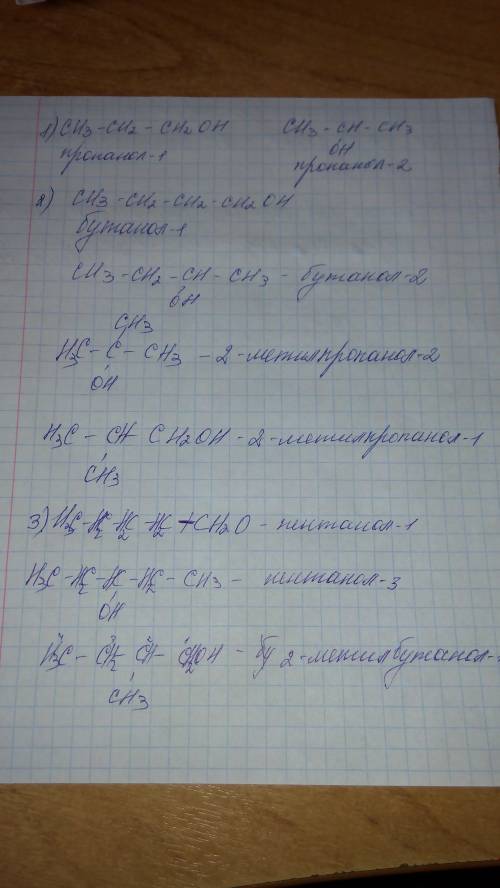 1) CH3-CH2-CH2OH CH3-CH-CH3
OH
пропанол-1 пропанол-2
2) CH3-CH2-CH2-CH2OH
бутанол-1
CH3-CH2-CH-CH3 - бутанол-2
OH
CH3
H3C-C-CH3 - 2-метилпропанол-2
OH
H3C-CH CH2OH - 2-метилпропанол-1
CH3
3) H3C-H2C-H2C-H2C+CH2O - пентанол-1
H3C-H2C-HC-H2C-CH3 - пентанол-3
OH
H3C-CH2 CH-CH2OH - 2-метилбутанол-
CH3